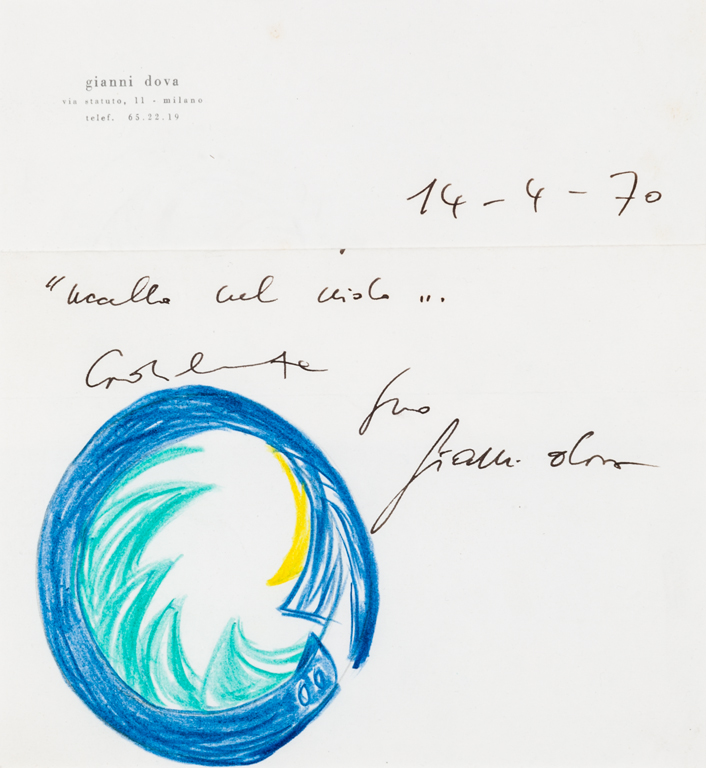 gianni dova
via statuto, 11 - milano
telef. 65.22.19
14-4-70
"uccello nel nido ...
Cordialmente
suo
Gianni Dova